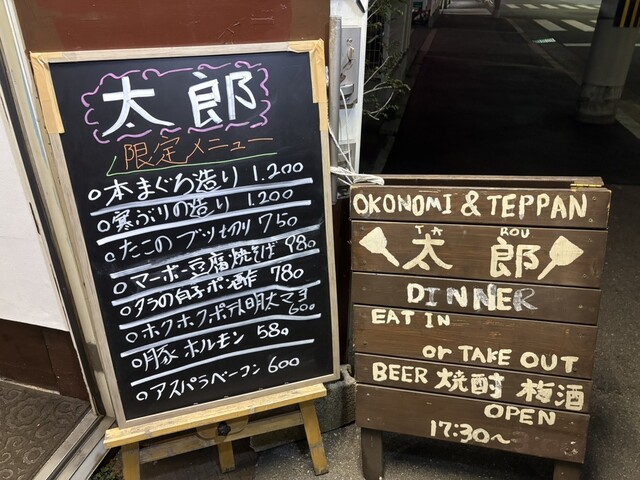 太郎
限定メニュー
○本まぐろ造り 1.200
○寒ぶりの造り 1.200
○たこのブツ切り 750
○マーボー豆腐焼そば 980
○タラの白子ポン酢 780
○ホクホクポテト明太マヨ
600
○豚ホルモン 580
○アスパラベーコン 600
OKONOMI & TEPPAN
TA ROU
太郎
DINNER
EAT IN
or TAKE OUT
BEER 焼酎 梅酒
OPEN
17:30~